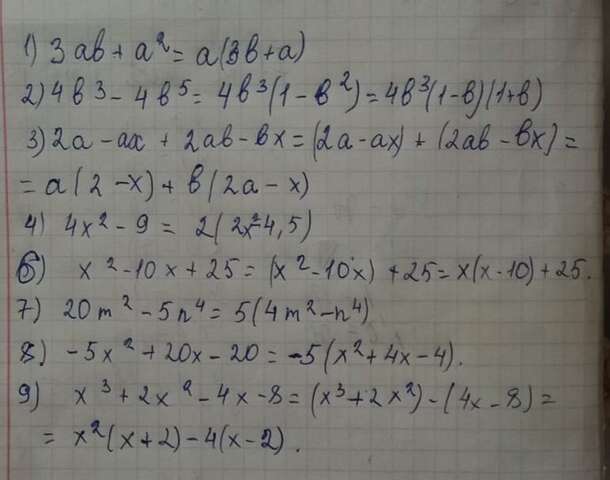 1) 3ab + a² = a(3b + a)
2) 4b³ - 4b⁵ = 4b³(1 - b²) = 4b³(1-b)(1+b)
3) 2a - ax + 2ab - bx = (2a - ax) + (2ab - bx) =
= a(2 - x) + b(2a - x)
4) 4x² - 9 = 2(2x² - 4,5)
6) x² - 10x + 25 = (x² - 10x) + 25 = x(x - 10) + 25.
7) 20m² - 5n⁴ = 5(4m² - n⁴)
8) -5x² + 20x - 20 = -5(x² + 4x - 4).
9) x³ + 2x² - 4x - 8 = (x³ + 2x²) - (4x - 8) =
= x²(x + 2) - 4(x - 2).